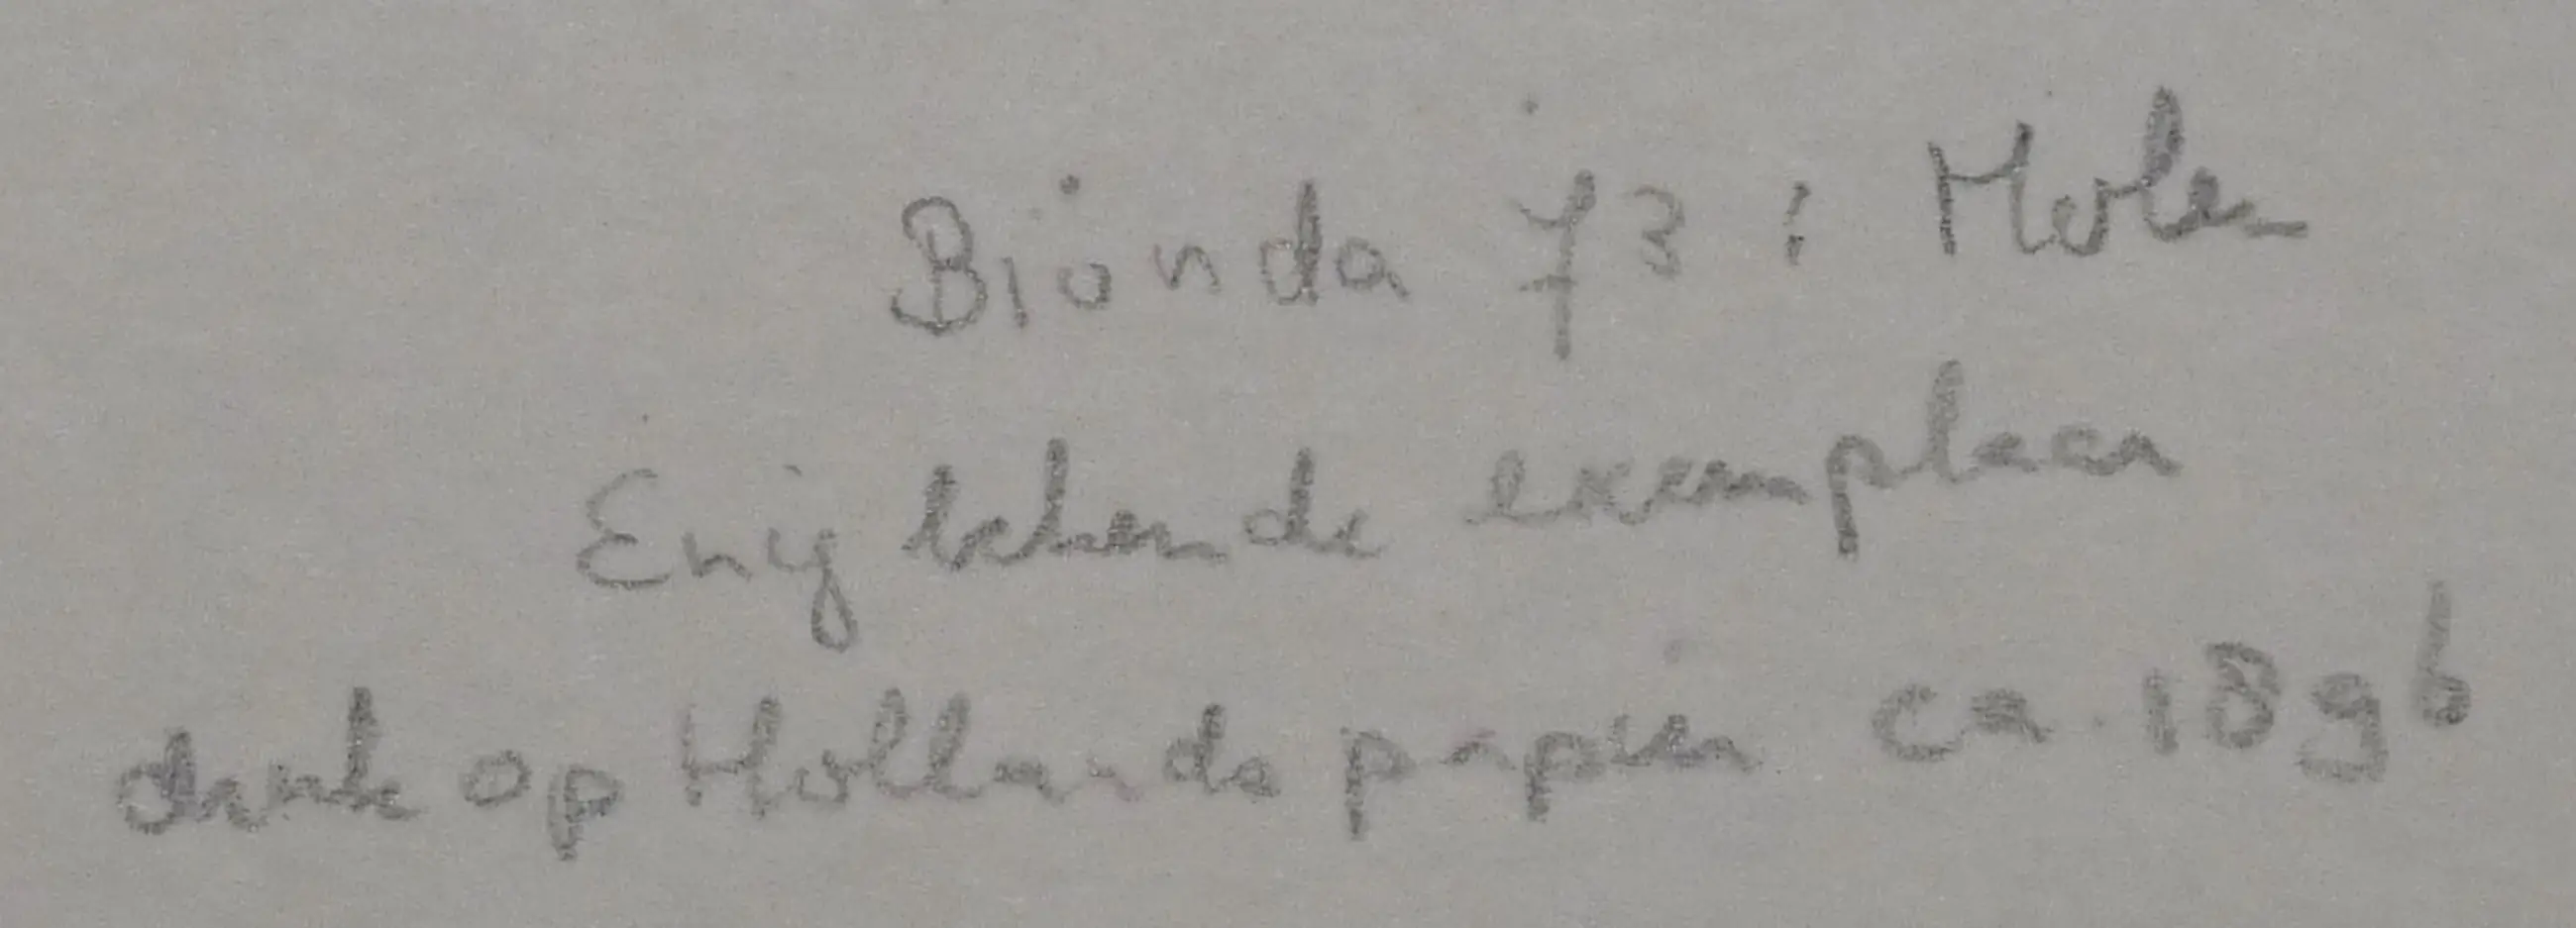 Bionda 73 : Molen
Enig bekende exemplaar
druk op Hollands papier ca. 1896